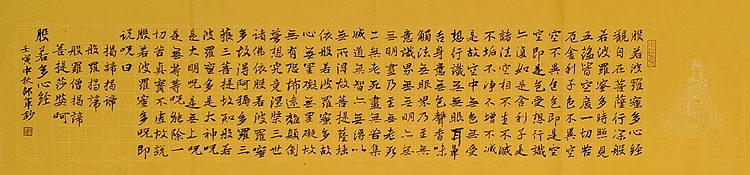 般若波羅蜜多心經
觀自在菩薩行深般
若波羅蜜多時照見
五蘊皆空度一切苦
厄舍利子色不異空
空不異色色即是空
空即是色受想行識
亦復如是舍利子是
諸法空相不生不滅
不垢不淨不增不減
是故空中無色無受
想行識無眼耳鼻
舌身意無色聲香味
觸法無眼界乃至無
意識界無無明亦無
無明盡乃至無老死
亦無老死盡無苦集
滅道無智亦無得以
無所得故菩提薩埵
依般若波羅蜜多故
心無罣礙無罣礙故
無有恐怖遠離顛倒
夢想究竟涅槃三世
諸佛依般若波羅蜜
多故得阿耨多羅三
藐三菩提故知般若
波羅蜜多是大神呪
是大明呪是無上呪
是無等等呪能除一
切苦真實不虛故說
般若波羅蜜多呪即
說呪曰
揭諦揭諦
般羅揭諦
般羅僧揭諦
菩提莎婆呵
般若多心經
壬寅中秋邵軍鈔